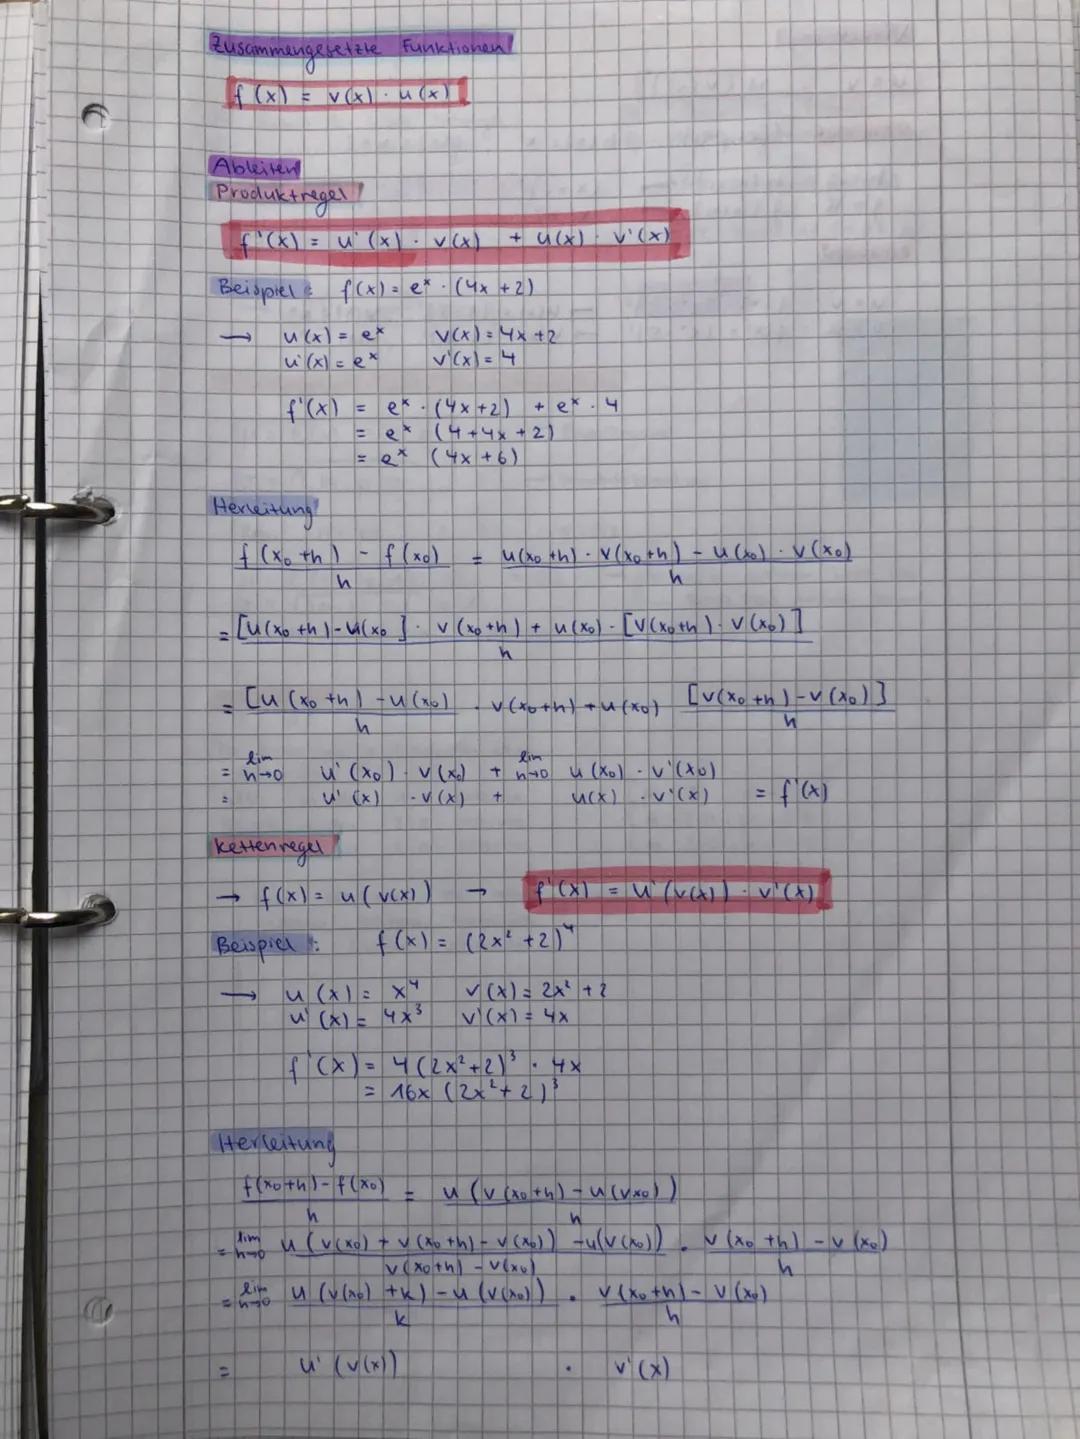 Zusammengesetzte Funktionen
f(x) = v(x) · u(x)
Ableiten
Produktregel
f'(x) = u'(x) · v(x) + u(x) · v'(x)
Beispiel: f(x) = eˣ · (4x+2)
→ u(x) = eˣ v(x) = 4x+2
u'(x) = eˣ v'(x) = 4
f'(x) = eˣ · (4x+2) + eˣ · 4
= eˣ (4+4x+2)
= eˣ (4x+6)
Herleitung
f(x₀+h) - f(x₀) / h = u(x₀+h) · v(x₀+h) - u(x₀) · v(x₀) / h
= [u(x₀+h) - u(x₀] · v(x₀+h) + u(x₀) · [v(x₀+h) · v(x₀)] / h
= [u(x₀+h) - u(x₀) / h · v(x₀+h) + u(x₀) [v(x₀+h) - v(x₀)] / h
= lim h→0 u'(x₀) · v(x₀) + lim h→0 u(x₀) · v'(x₀)
= u'(x) · v(x) + u(x) · v'(x) = f'(x)
Kettenregel
→ f(x) = u(v(x)) → f'(x) = u'(v(x)) · v'(x)
Beispiel: f(x) = (2x²+2)⁴
→ u(x) = x⁴ v(x) = 2x²+2
u'(x) = 4x³ v'(x) = 4x
f'(x) = 4(2x²+2)³ · 4x
= 16x (2x²+2)³
Herleitung
f(x₀+h) - f(x₀) / h = u(v(x₀+h) - u(vx₀)) / h
= lim h→0 u(v(x₀) + v(x₀+h) - v(x₀)) - u(v(x₀)) / v(x₀+h) - v(x₀) · v(x₀+h) - v(x₀) / h
= lim h→0 u(v(x₀) + k) - u(v(x₀)) / k · v(x₀+h) - v(x₀) / h
= u'(v(x)) · v'(x)